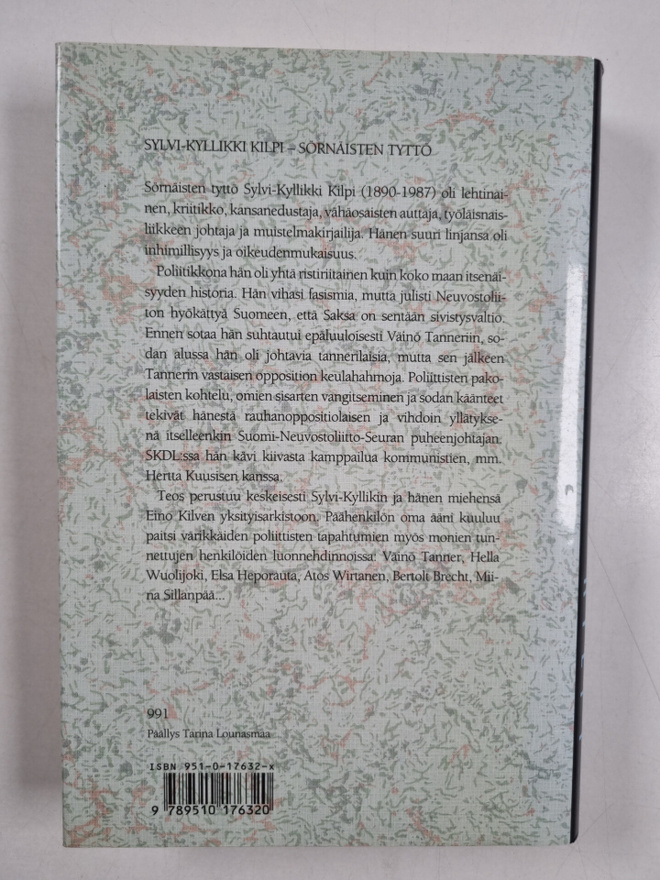 SYLVI-KYLLIKKI KILPI – SÖRNÄISTEN TYTTÖ
Sörnäisten tyttö Sylvi-Kyllikki Kilpi (1890-1987) oli lehtinai-
nen, kriitikko, kansanedustaja, vähäosaisten auttaja, työläisnais-
liikkeen johtaja ja muistelmakirjailija. Hänen suuri linjansa oli
inhimillisyys ja oikeudenmukaisuus.
Poliitikkona hän oli yhtä ristiriitainen kuin koko maan itsenäi-
syyden historia. Hän vihasi fasismia, mutta julisti Neuvostolii-
ton hyökättyä Suomeen, että Saksa on sentään sivistysvaltio.
Ennen sotaa hän suhtautui epäluuloisesti Väinö Tanneriin, so-
dan alussa hän oli johtavia tannerilaisia, mutta sen jälkeen
Tannerin vastaisen opposition keulahahmoja. Poliittisten pako-
laisten kohtelu, omien sisarten vangitseminen ja sodan käänteet
tekivät hänestä rauhanoppositiolaisen ja vihdoin yllätykse-
nä itselleenkin Suomi-Neuvostoliitto-Seuran puheenjohtajan.
SKDL:ssa hän kävi kiivasta kamppailua kommunistien, mm.
Hertta Kuusisen kanssa.
Teos perustuu keskeisesti Sylvi-Kyllikin ja hänen miehensä
Eino Kilven yksityisarkistoon. Päähenkilön oma ääni kuuluu
paitsi värikkäiden poliittisten tapahtumien myös monien tun-
nettujen henkilöiden luonnehdinnoissa: Väinö Tanner, Hella
Wuolijoki, Elsa Heporauta, Atos Wirtanen, Bertolt Brecht, Mii-
na Sillanpää...
991
Päällys Tarina Lounasmaa
ISBN 951-0-17632-x
9 789510 176320